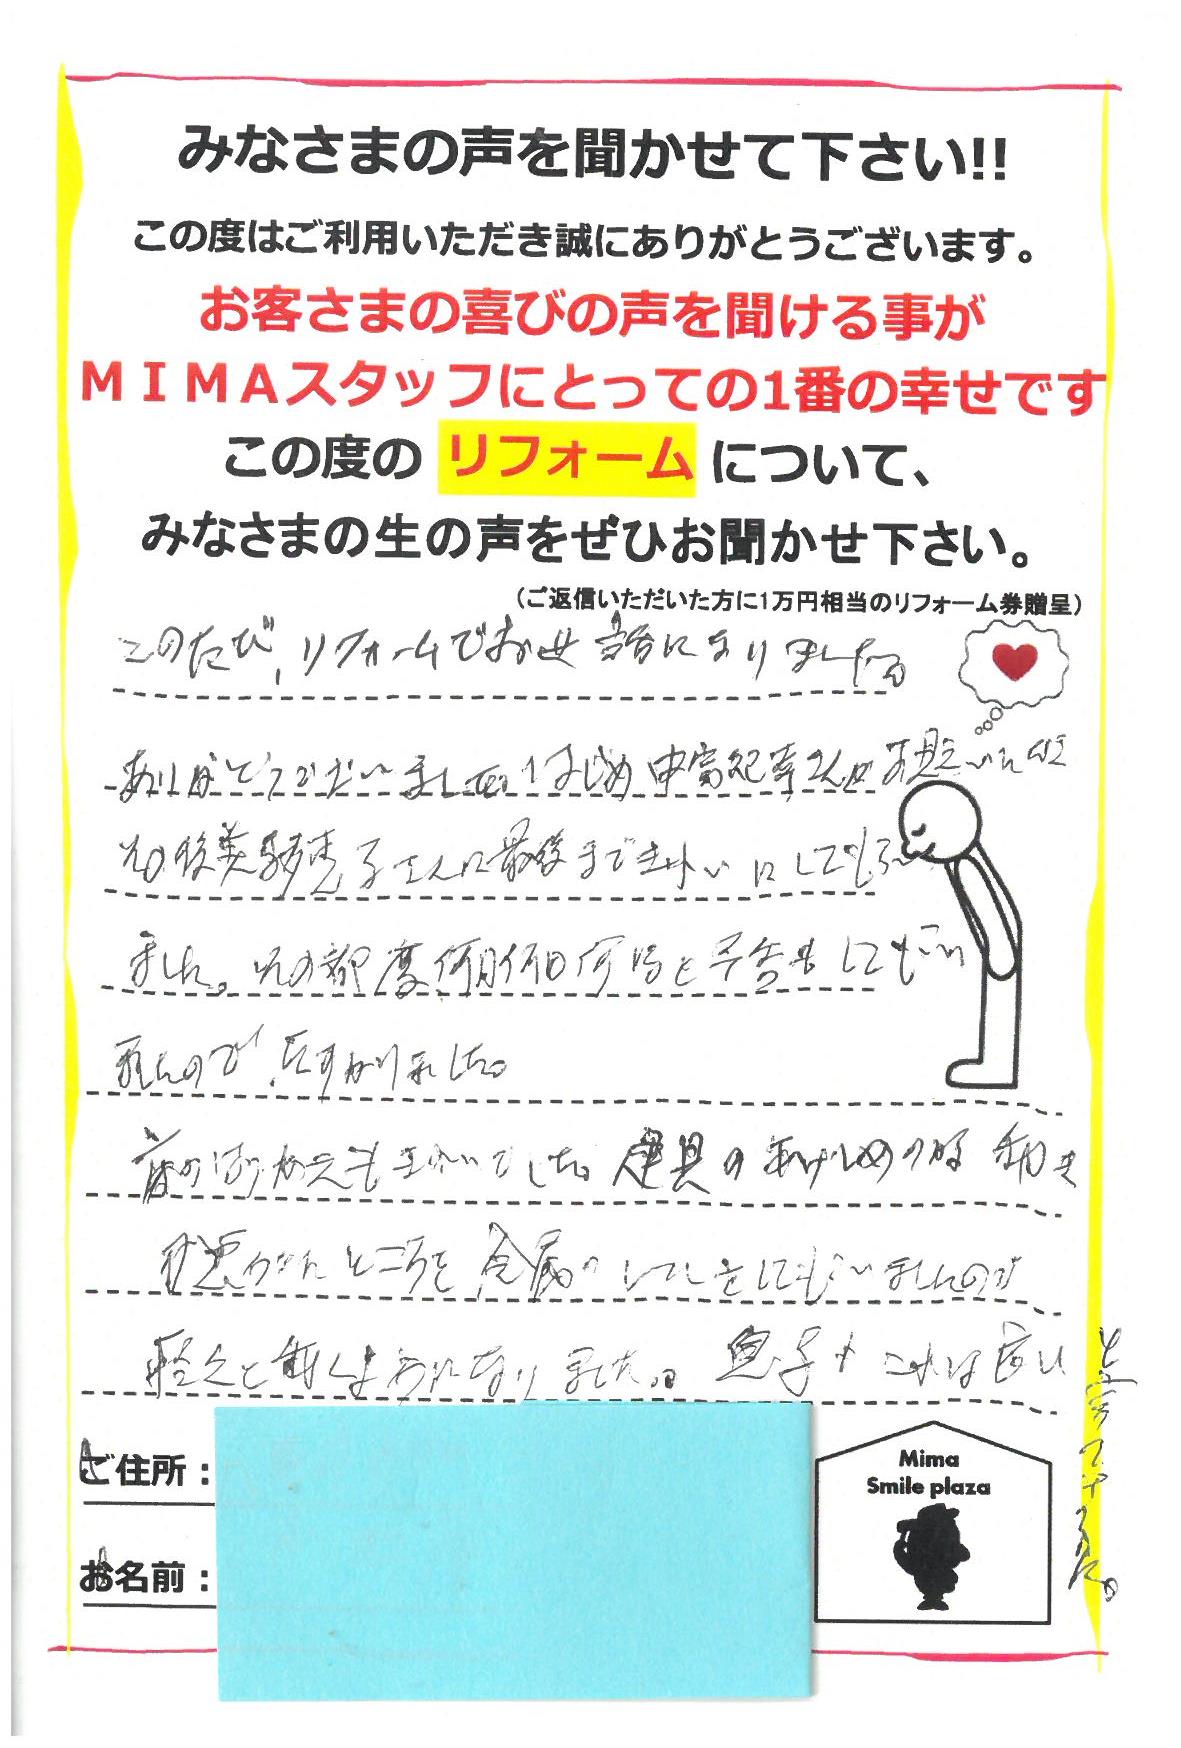 みなさまの声を聞かせて下さい!!
この度はご利用いただき誠にありがとうございます。
お客さまの喜びの声を聞ける事が
ＭＩＭＡスタッフにとっての1番の幸せです
この度の リフォーム について、
みなさまの生の声をぜひお聞かせ下さい。
（ご返信いただいた方に1万円相当のリフォーム券贈呈）
このたび、リフォームでお世話になりました。
ありがとうございました。はじめ中富紀幸さんが
その後美馬 さんに最後まできれいにしてもらい
ました。その都度何月何日何時と予告もしてもらい
ましたので、たすかりました。
はりかえもきれいでした。建具のあけしめの 動き
が悪かったところを金属の してもらいましたので
軽々と動くようになりました。息子もこれは良い
と言っていました。
ご住所：
お名前：
Mima
Smile plaza